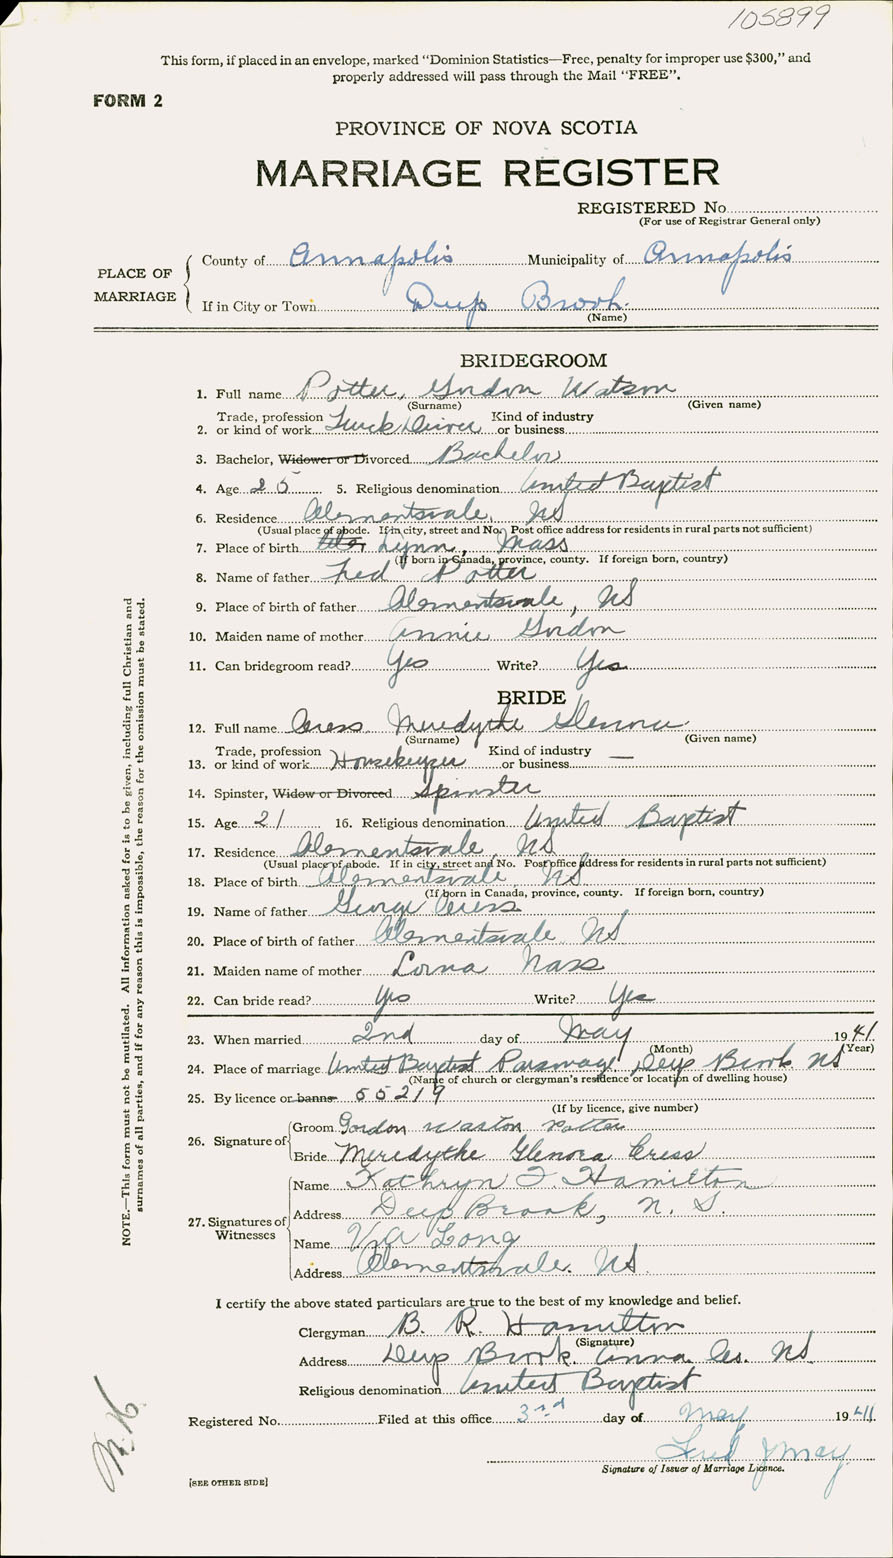 105899
This form, if placed in an envelope, marked "Dominion Statistics—Free, penalty for improper use $300," and
properly addressed will pass through the Mail "FREE".
FORM 2
PROVINCE OF NOVA SCOTIA
MARRIAGE REGISTER
REGISTERED No.
(For use of Registrar General only)
PLACE OF MARRIAGE
County of Annapolis Municipality of Annapolis
If in City or Town Deep Brook.
(Name)
BRIDEGROOM
1. Full name Potter, Gordon Watson
(Surname) (Given name)
2. Trade, profession or kind of work Truck Driver Kind of industry or business
3. Bachelor, Widower or Divorced Bachelor
4. Age 25 5. Religious denomination United Baptist
6. Residence Clementsvale, NS
(Usual place of abode. If in city, street and No. Post office address for residents in rural parts not sufficient)
7. Place of birth Lynn, Mass
(If born in Canada, province, county. If foreign born, country)
8. Name of father Fred Potter
9. Place of birth of father Clementsvale, NS
10. Maiden name of mother Annie Gordon
11. Can bridegroom read? Yes Write? Yes
BRIDE
12. Full name Cress Meredythe Glenora
(Surname) (Given name)
13. Trade, profession or kind of work Housekeeper Kind of industry or business —
14. Spinster, Widow or Divorced Spinster
15. Age 21 16. Religious denomination United Baptist
17. Residence Clementsvale, NS
(Usual place of abode. If in city, street and No. Post office address for residents in rural parts not sufficient)
18. Place of birth Clementsvale NS
(If born in Canada, province, county. If foreign born, country)
19. Name of father George Cress
20. Place of birth of father Clementsvale NS
21. Maiden name of mother Lorna Nass
22. Can bride read? Yes Write? Yes
23. When married 2nd day of May 1941
(Month) (Year)
24. Place of marriage United Baptist Parsonage Deep Brook NS
(Name of church or clergyman's residence or location of dwelling house)
25. By licence or banns 55219
(If by licence, give number)
26. Signature of
Groom Gordon Waston Potter
Bride Meredythe Glenora Cress
27. Signatures of Witnesses
Name Kathryn I. Hamilton
Address Deep Brook, N. S.
Name Long
Address Clementsvale. NS.
I certify the above stated particulars are true to the best of my knowledge and belief.
Clergyman B. R. Hamilton
(Signature)
Address Deep Brook. Anna. Co. NS.
Religious denomination United Baptist
Registered No. Filed at this office 3rd day of May 1941
Fred J May
Signature of Issuer of Marriage Licence.
[SEE OTHER SIDE]
NOTE.—This form must not be mutilated. All information asked for is to be given, including full Christian and
surnames of all parties, and if for any reason this is impossible, the reason for the omission must be stated.